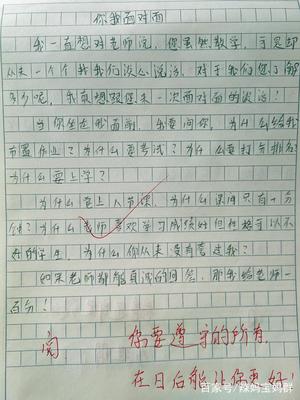 你我面对面
我一直想对老师说,您虽然教学,可是却
从来一个个和我们谈心说话,对于我们您了解
多少呢,我真想跟您来一次面对面的谈话!
当你坐在我面前,我要问你,为什么给我
布置作业?为什么要考试?为什么要打分排名?
为什么要上学?
为什么要上人节课,为什么课间只有十分
钟?为什么老师喜欢学习成绩好但但接守以不
好的学生,为什么你从来没有管过我?
如果老师都能真诚的回答,那我给老师一
百分!
阅 你要遵守的所有,
在日后能让你更好!
百家号/辣妈宝妈群